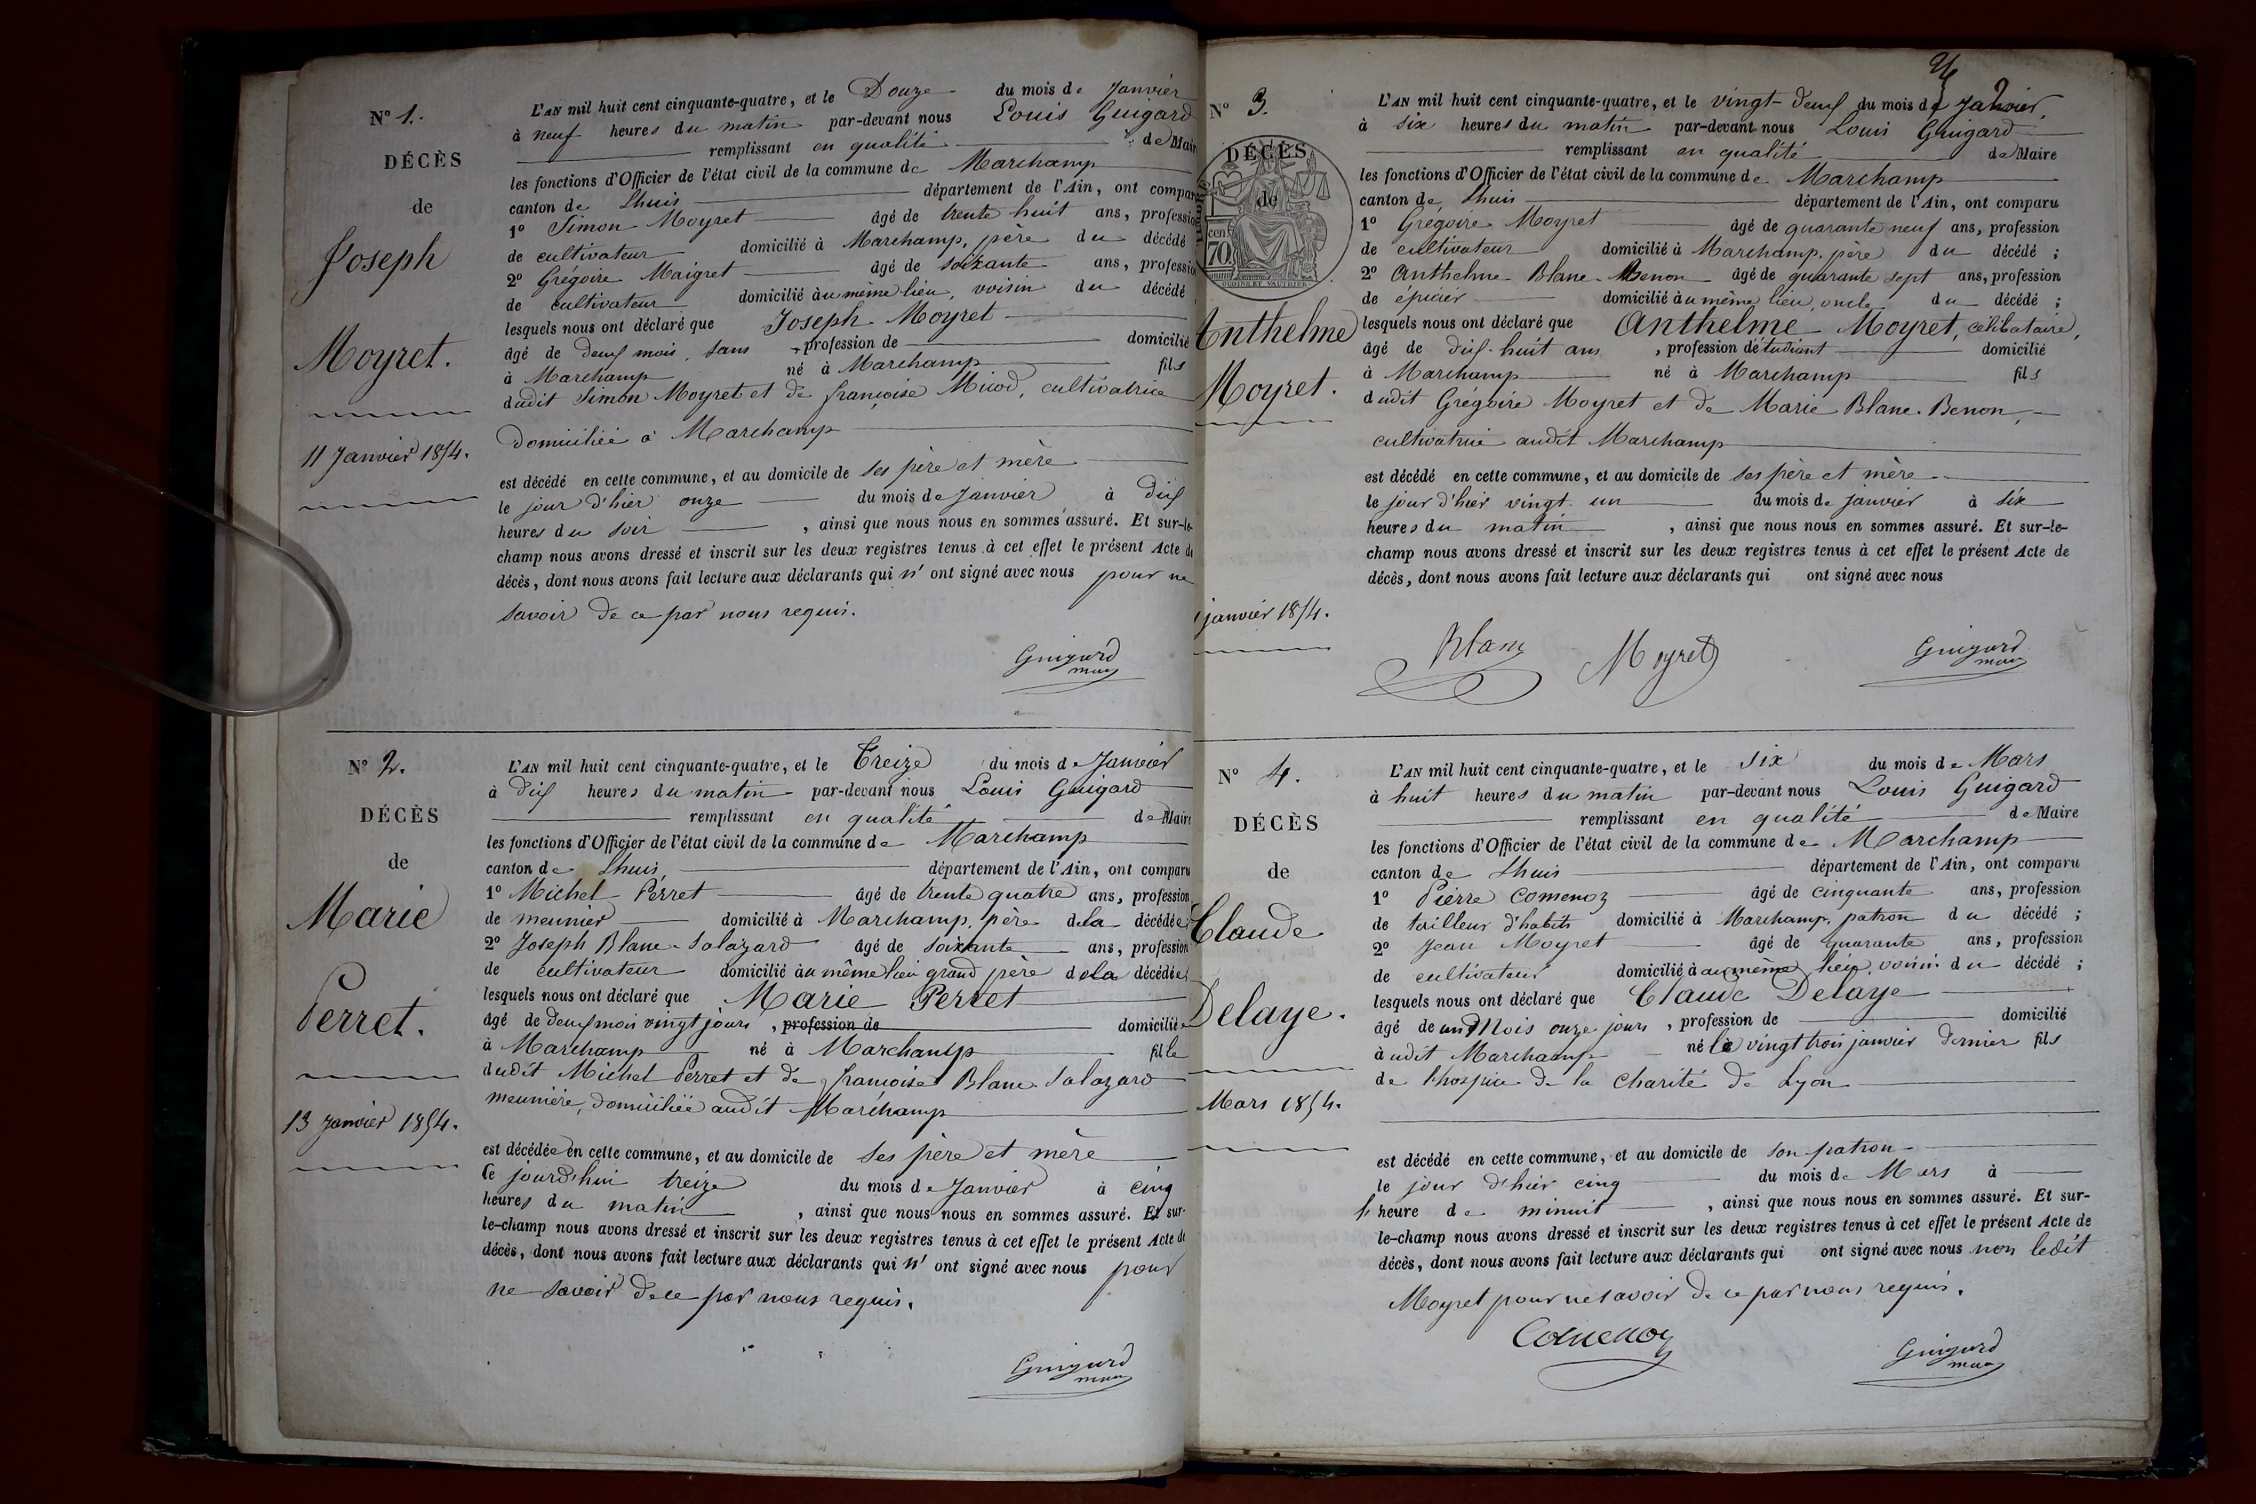 N° 1.
DÉCÈS
de
Joseph
Moyret.
11 Janvier 1854.
L'AN mil huit cent cinquante-quatre, et le Douze du mois de Janvier
à neuf heures du matin par-devant nous Louis Guigard
remplissant en qualité de Mair
les fonctions d'Officier de l'état civil de la commune de Marchamp
canton de Lhuis département de l'Ain, ont compar
1° Simon Moyret âgé de trente huit ans, professio
de cultivateur domicilié à Marchamp, père du décédé
2° Grégoire Maigret âgé de soixante ans, professio
de cultivateur domicilié au même lieu, voisin du décédé
lesquels nous ont déclaré que Joseph Moyret
âgé de deux mois, sans profession de domicilié
à Marchamp né à Marchamp fils
dudit Simon Moyret et de françoise Micod, cultivatrice
Domiciliée à Marchamp
est décédé en cette commune, et au domicile de ses père et mère
le jour d'hier onze du mois de Janvier à dix
heures du soir, ainsi que nous nous en sommes assuré. Et sur-le-
champ nous avons dressé et inscrit sur les deux registres tenus à cet effet le présent Acte de
décès, dont nous avons fait lecture aux déclarants qui n' ont signé avec nous pour ne
savoir de ce par nous requis.
Guigard
maire
N° 2.
DÉCÈS
de
Marie
Perret.
13 Janvier 1854.
L'AN mil huit cent cinquante-quatre, et le Treize du mois de Janvier
à dix heures du matin par-devant nous Louis Guigard
remplissant en qualité de Maire
les fonctions d'Officier de l'état civil de la commune de Marchamp
canton de Lhuis département de l'Ain, ont comparu
1° Michel Perret âgé de trente quatre ans, profession
de meunier domicilié à Marchamp, père dela décédée
2° Joseph Blanc-Salazard âgé de soixante ans, profession
de cultivateur domicilié au même lieu grand père dela décédée
lesquels nous ont déclaré que Marie Perret
âgé de deux mois vingt jours, profession de domiciliée
à Marchamp né à Marchamp fille
dudit Michel Perret et de françoise Blanc Salazard
meunière, domiciliée audit Marchamp
est décédée en cette commune, et au domicile de ses père et mère
Ce jourd'hui treize du mois de Janvier à cinq
heures du matin, ainsi que nous nous en sommes assuré. Et sur-
le-champ nous avons dressé et inscrit sur les deux registres tenus à cet effet le présent Acte de
décès, dont nous avons fait lecture aux déclarants qui n' ont signé avec nous pour
ne savoir de ce par nous requis.
Guigard
maire
2
N° 3.
DÉCÈS
de
cent
70
Anthelme
Moyret.
janvier 1854.
L'AN mil huit cent cinquante-quatre, et le vingt-deux du mois de Janvier,
à six heures du matin par-devant nous Louis Guigard
remplissant en qualité de Maire
les fonctions d'Officier de l'état civil de la commune de Marchamp
canton de Lhuis département de l'Ain, ont comparu
1° Grégoire Moyret âgé de quarante neuf ans, profession
de cultivateur domicilié à Marchamp, père du décédé ;
2° Anthelme Blanc-Benon âgé de quarante sept ans, profession
de épicier domicilié au même lieu, oncle du décédé ;
lesquels nous ont déclaré que Anthelme Moyret, célibataire,
âgé de dix-huit ans, profession d'étudiant domicilié
à Marchamp né à Marchamp fils
dudit Grégoire Moyret et de Marie Blanc-Benon,
cultivatrice audit Marchamp
est décédé en cette commune, et au domicile de ses père et mère
le jour d'hier vingt-un du mois de janvier à six
heures du matin, ainsi que nous nous en sommes assuré. Et sur-le-
champ nous avons dressé et inscrit sur les deux registres tenus à cet effet le présent Acte de
décès, dont nous avons fait lecture aux déclarants qui ont signé avec nous
Blanc Moyret Guigard
maire
N° 4.
DÉCÈS
de
Claude
Delaye.
Mars 1854.
L'AN mil huit cent cinquante-quatre, et le six du mois de Mars
à huit heures du matin par-devant nous Louis Guigard
remplissant en qualité de Maire
les fonctions d'Officier de l'état civil de la commune de Marchamp
canton de Lhuis département de l'Ain, ont comparu
1° Pierre Comenoz âgé de cinquante ans, profession
de tailleur d'habits domicilié à Marchamp, patron du décédé ;
2° Jean Moyret âgé de quarante ans, profession
de cultivateur domicilié à au même lieu, voisin du décédé ;
lesquels nous ont déclaré que Claude Delaye
âgé de un Mois onze jours, profession de domicilié
à udit Marchamp né le vingt trois janvier dernier fils
de l'hospice de la Charité de Lyon
est décédé en cette commune, et au domicile de son patron
le jour d'hier cinq du mois de Mars à
heure de minuit, ainsi que nous nous en sommes assuré. Et sur-
le-champ nous avons dressé et inscrit sur les deux registres tenus à cet effet le présent Acte de
décès, dont nous avons fait lecture aux déclarants qui ont signé avec nous non ledit
Moyret pour ne savoir de ce par nous requis.
Comenoz
Guigard
maire